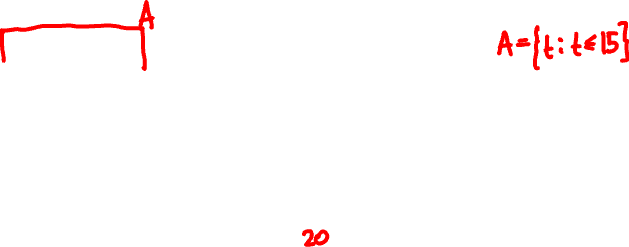 A
A={t: t≤15}
20